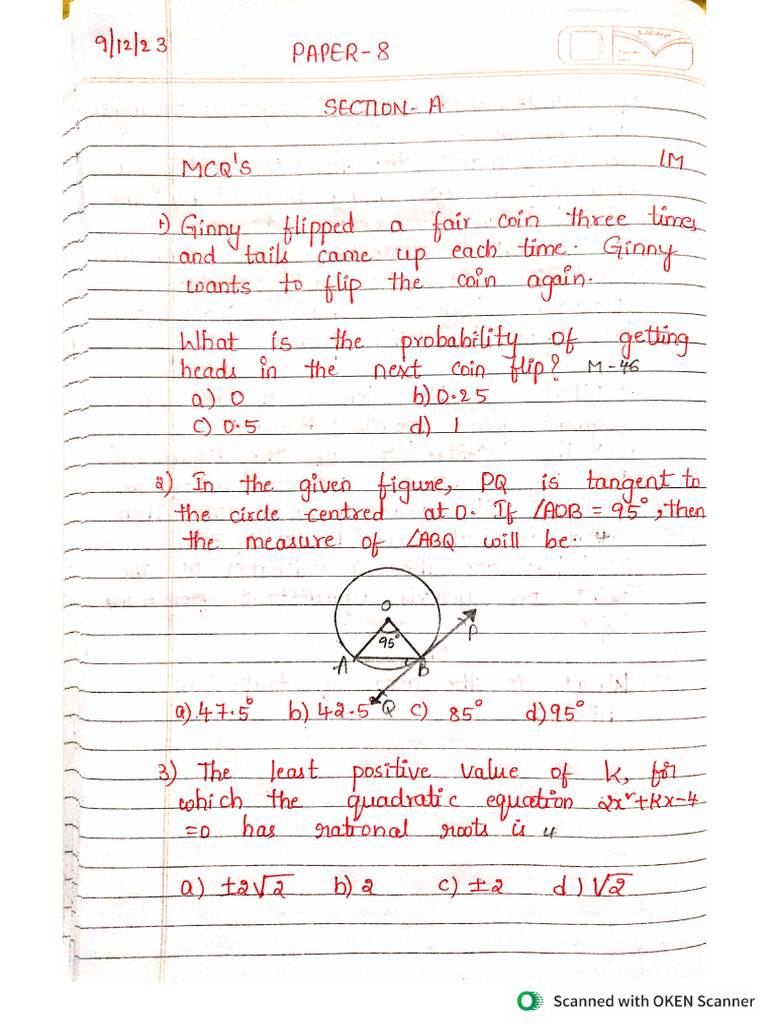 9/12/23
PAPER-8
SECTION- A
MCQ'S 1M
1) Ginny flipped a fair coin three times
and tails came up each time. Ginny
wants to flip the coin again.
What is the probability of getting
heads in the next coin flip? M-46
a) 0 b) 0.25
c) 0.5 d) 1
2) In the given figure, PQ is tangent to
the circle centred at O. If ∠AOB = 95°, then
the measure of ∠ABQ will be. 4
O
95°
P
A B
Q
a) 47.5° b) 42.5° c) 85° d) 95°
3) The least positive value of k, for
which the quadratic equation 2x²+kx-4
=0 has rational roots is 4
a) ±2√2 b) 2 c) ±2 d) √2
Scanned with OKEN Scanner